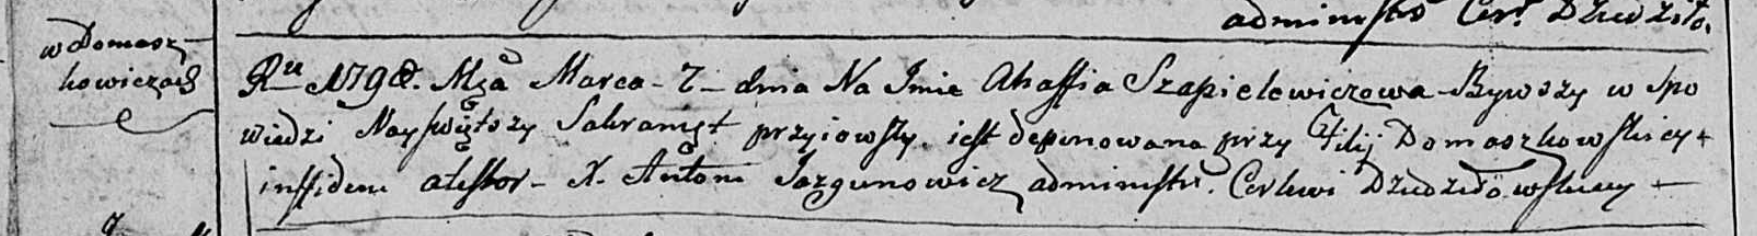 administr Cer. Dziedziło.
w Domasz-
kowiczach
Ru 1798. Mca Marca - 7 - dnia Na Imie Ahaffia Szapielewiczowa - Bywszy w Spo
wiedzi Nayświętszy Sakrament przyiowszy. iest deponowana przy Filij Domaszkowskiey +
in fidem atestor - X. Antoni Jazgunowicz administr. Cerkwi Dziedziłowskiey -